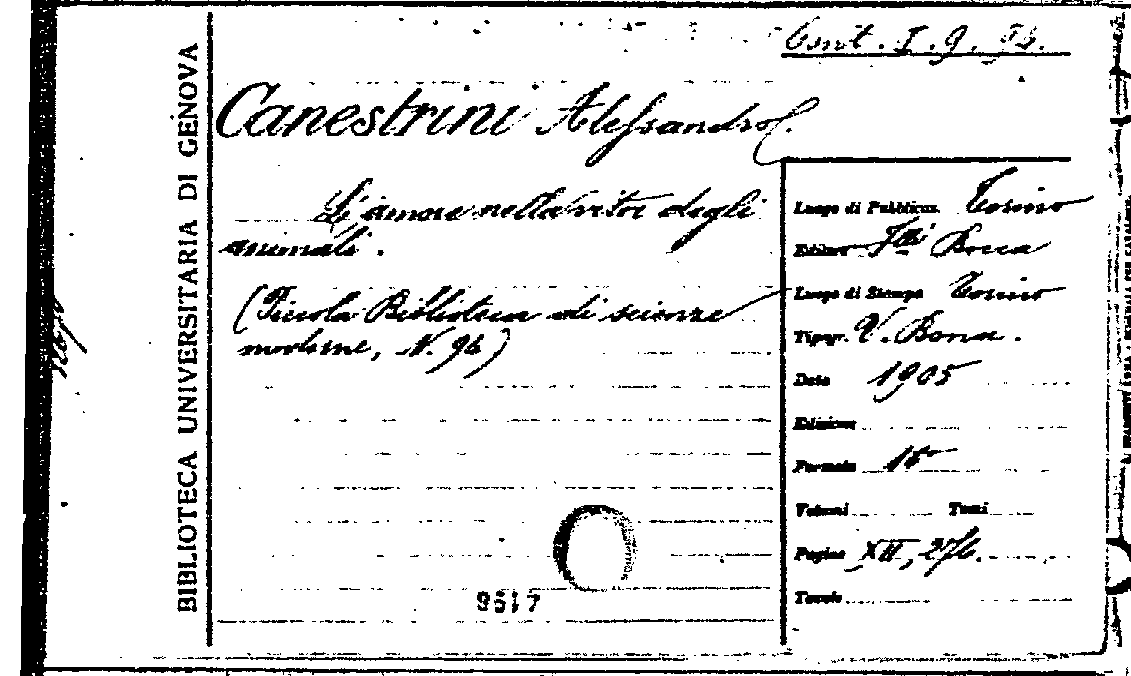 Cont. I. 9.
BIBLIOTECA UNIVERSITARIA DI GENOVA
Canestrini Alessandro.
L'amore nella vita degli
animali.
(Piccola Biblioteca di scienze
moderne, N. 96)
Luogo di Pubblicaz. Torino
Editore F.lli Bocca
Luogo di Stampa Torino
Tipogr. V. Bona.
Data 1905
Edizione
Formato
Volumi Tomi
Pagine XII, 276.
Tavole
9517